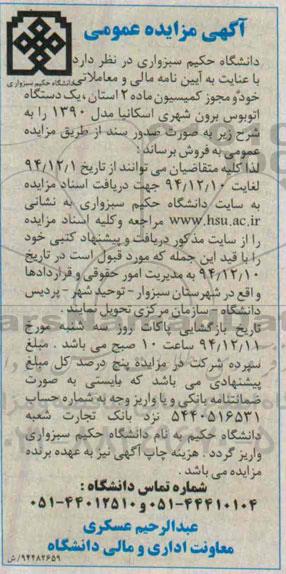 آگهی مزایده عمومی
دانشگاه حکیم سبزواری
دانشگاه حکیم سبزواری در نظر دارد
با عنایت به آیین نامه مالی و معاملاتی
خود و مجوز کمیسیون ماده ۲ استان ، یک دستگاه
اتوبوس برون شهری اسکانیا مدل ۱۳۹۰ را به
شرح زیر به صورت صدور سند از طریق مزایده
عمومی به فروش برساند :
لذا کلیه متقاضیان می توانند از تاریخ ۹۴/۱۲/۱
لغایت ۹۴/۱۲/۱۰ جهت دریافت اسناد مزایده
به سایت دانشگاه حکیم سبزواری به نشانی
www.hsu.ac.ir مراجعه و کلیه اسناد مزایده
را از سایت مذکور دریافت و پیشنهاد کتبی خود
را با قید این جمله که مورد قبول است در تاریخ
۹۴/۱۲/۱۰ به مدیریت امور حقوقی و قراردادها
واقع در شهرستان سبزوار - توحید شهر - پردیس
دانشگاه - سازمان مرکزی تحویل نمایند .
تاریخ بازگشایی پاکات روز سه شنبه مورخ
۹۴/۱۲/۱۱ ساعت ۱۰ صبح می باشد . مبلغ
سپرده شرکت در مزایده پنج درصد کل مبلغ
پیشنهادی می باشد که بایستی به صورت
ضمانتنامه بانکی و یا واریز وجه به شماره حساب
۵۴۴۰۵۱۶۵۳۱ نزد بانک تجارت شعبه
دانشگاه حکیم به نام دانشگاه حکیم سبزواری
واریز گردد . هزینه چاپ آگهی نیز به عهده برنده
مزایده می باشد .
شماره تماس دانشگاه :
۰۵۱-۴۴۴۱۰۱۰۴ و ۰۵۱-۴۴۰۱۲۵۱۰
عبدالرحیم عسکری
معاونت اداری و مالی دانشگاه
۹۴۴۸۲۶۵۹/ش